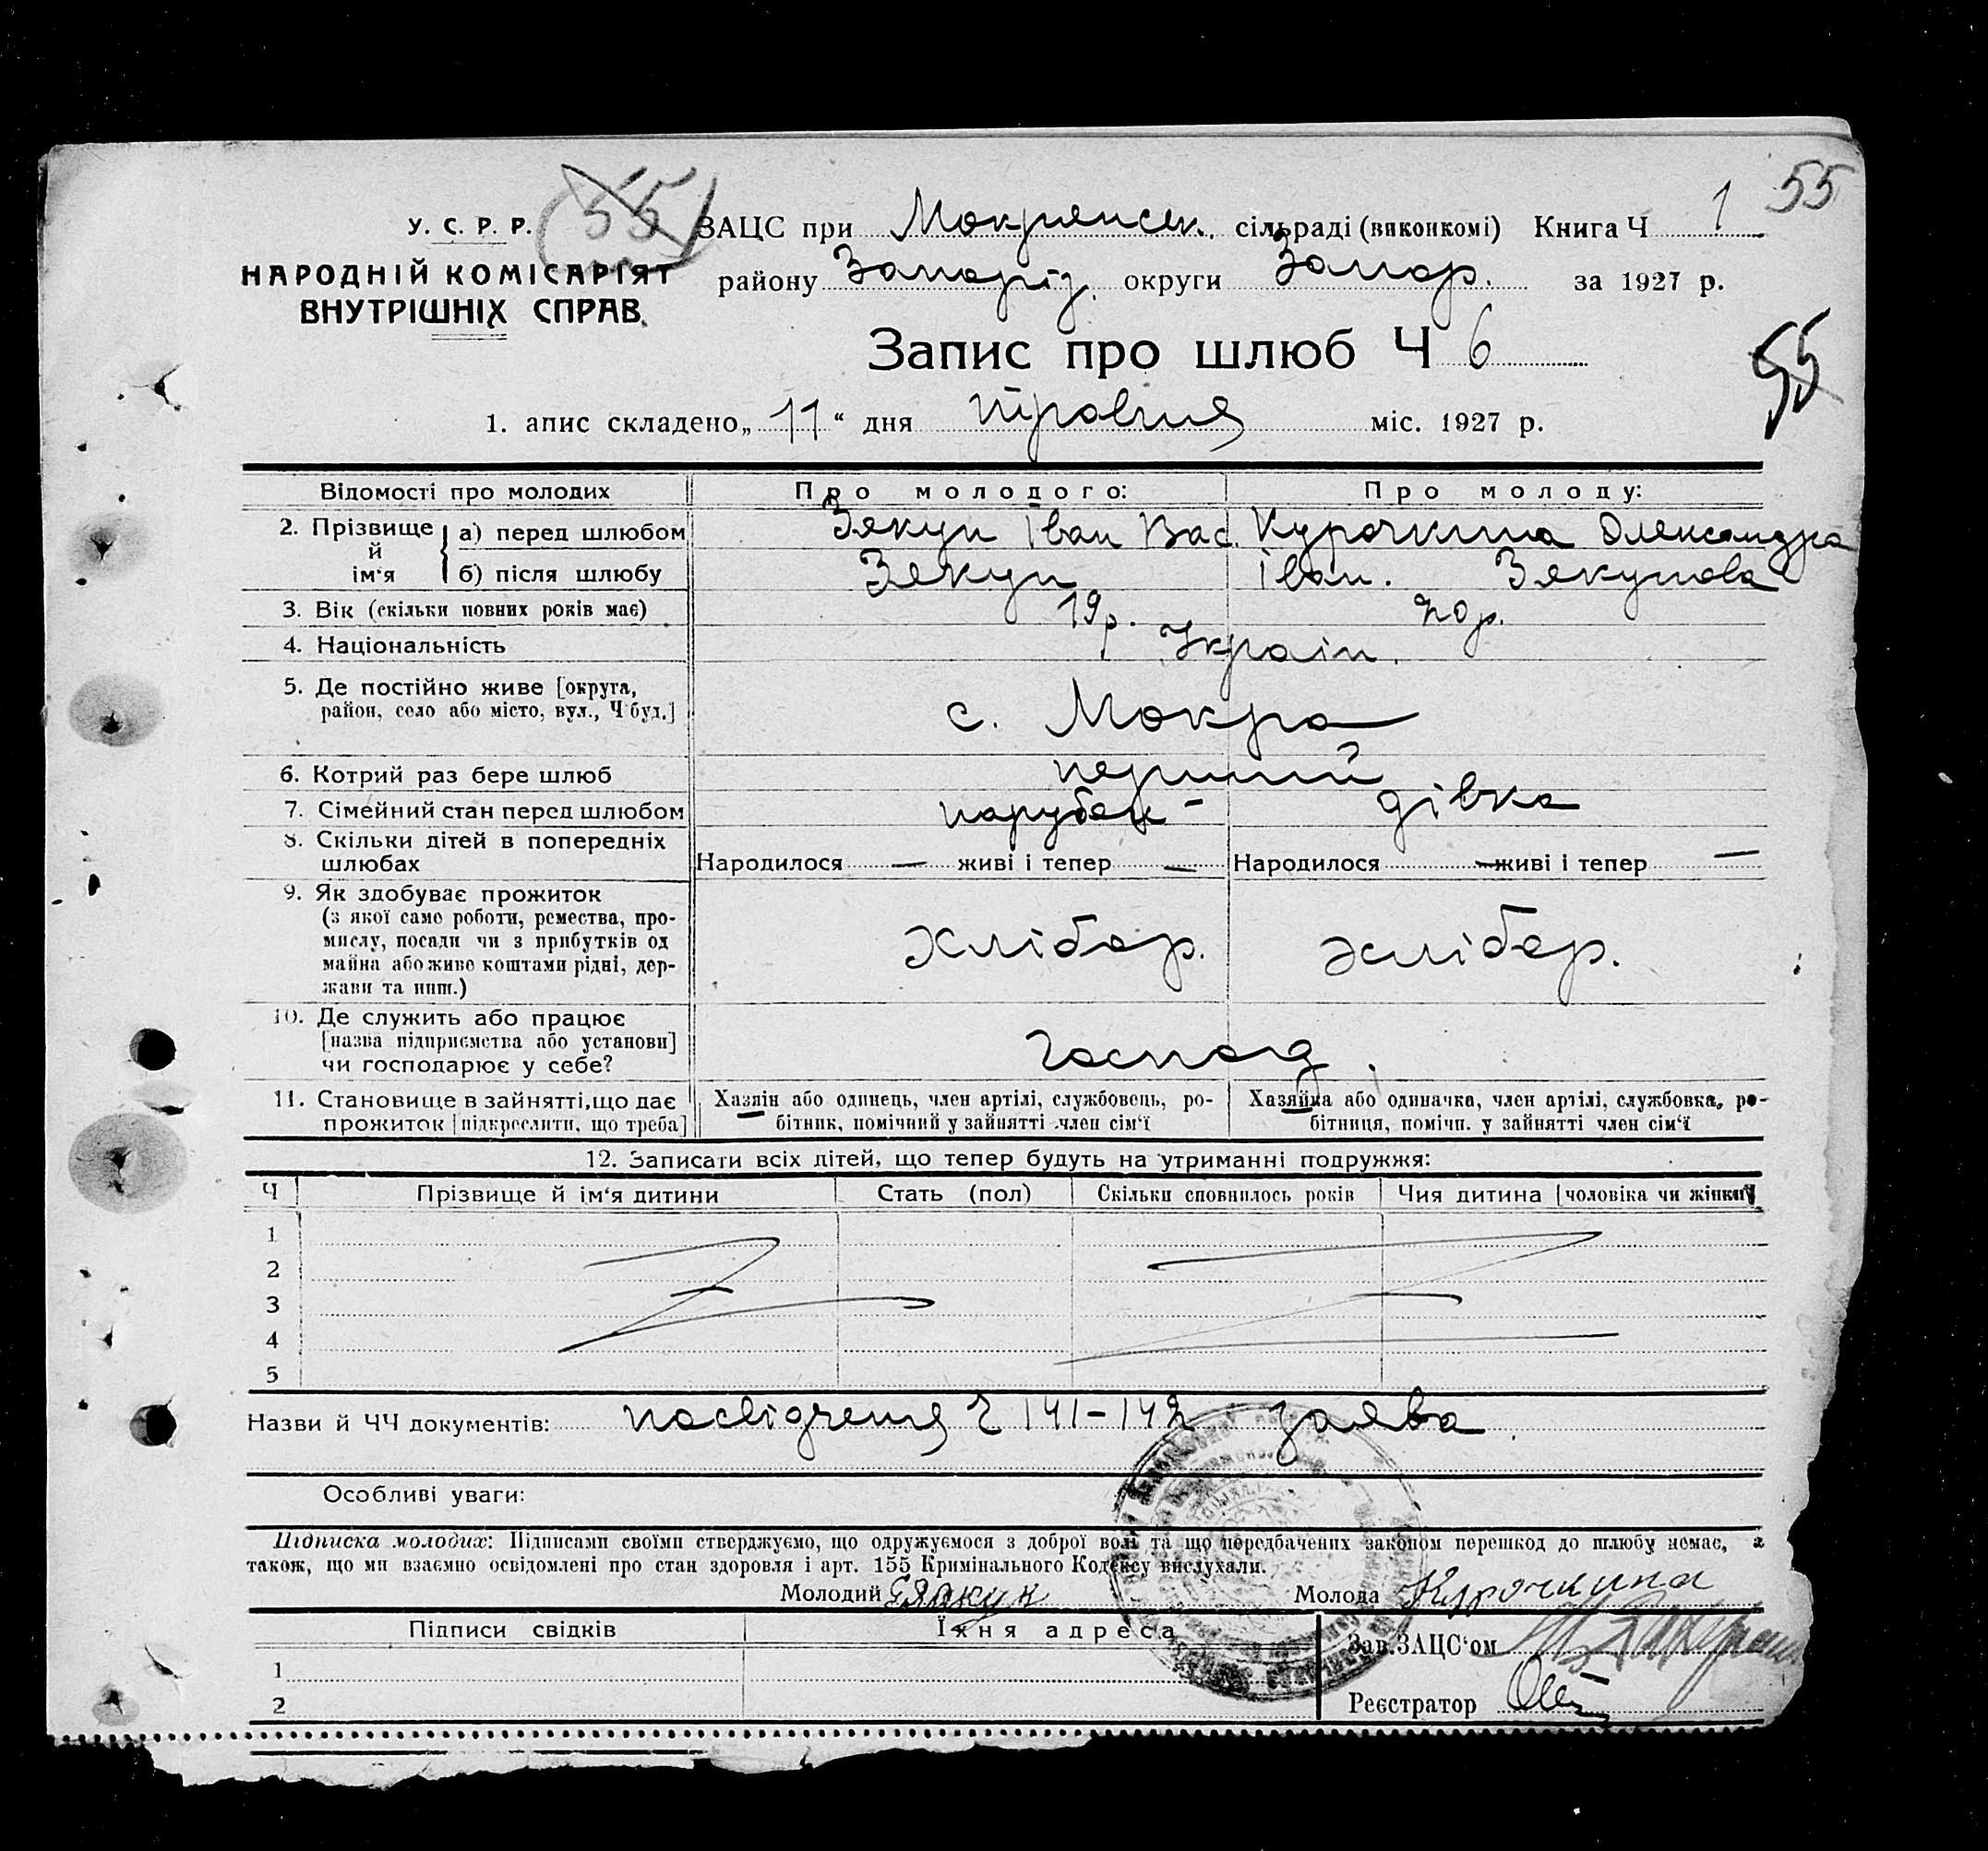 55
1 55
У. С. Р. Р. ЗАЦС при Мокрянськ. сільраді (виконкомі) Книга Ч
НАРОДНІЙ КОМІСАРІЯТ району Запоріз. округи Запор. за 1927 р.
ВНУТРІШНІХ СПРАВ.
Запис про шлюб Ч 6
55
1. апис складено „11“ дня травня міс. 1927 р.
Відомості про молодих Про молодого: Про молоду:
2. Прізвище й ім‘я а) перед шлюбом Зякун Іван Вас. Курочкина Олександра
б) після шлюбу Зякун Іван. Зякунова
3. Вік (скільки повних років має) 19р. 20р.
4. Національність Україн.
5. Де постійно живе [округа,
район, село або місто, вул., Ч буд.] с. Мокра
6. Котрий раз бере шлюб перший
7. Сімейний стан перед шлюбом парубок - дівка
8. Скільки дітей в попередніх
шлюбах Народилося — живі і тепер — Народилося — живі і тепер —
9. Як здобуває прожиток
(з якої саме роботи, ремества, про-
мислу, посади чи з прибутків од хлібор. хлібор.
майна або живе коштами рідні, дер-
жави та инш.)
10. Де служить або працює
[назва підприємства або установи] Господ.
чи господарює у себе?
11. Становище в зайнятті, що дає Хазяїн або одинець, член артілі, службовець, ро- Хазяйка або одиначка, член артілі, службовка, ро-
прожиток [підкреслити, що треба] бітник, помічний у зайнятті член сім‘ї бітниця, помічн. у зайнятті член сім‘ї
12. Записати всіх дітей, що тепер будуть на утриманні подружжя:
Ч Прізвище й ім‘я дитини Стать (пол) Скільки сповнилось років Чия дитина [чоловіка чи жінки]
1
2
3
4
5
Назви й ЧЧ документів: посвідчення Ч 141-142 заява
Особливі уваги:
Підписка молодих: Підписами своїми стверджуємо, що одружуємося з доброї волі та що передбачених законом перешкод до шлюбу немає, а
також, що ми взаємно освідомлені про стан здоровля і арт. 155 Кримінального Кодексу вислухали.
Молодий Зякун Молода Курочкина
Підписи свідків Їхня адреса Зав. ЗАЦС‘ом
1
2 Реєстратор